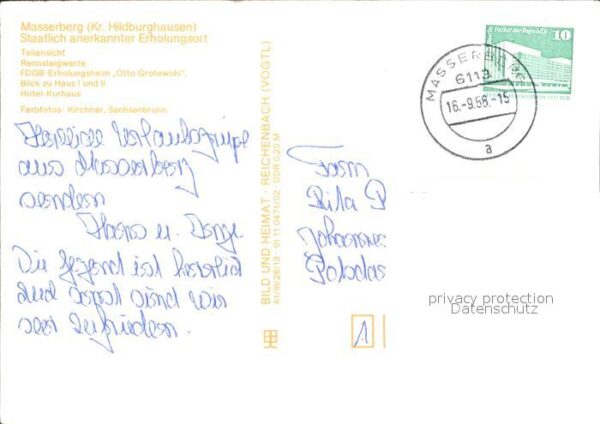 Masserberg (Kr. Hildburghausen)
Staatlich anerkannter Erholungsort
Teilansicht
Rennsteigwarte
FDGB-Erholungsheim „Otto Grotewohl“
Blick zu Haus I und II
Hotel-Kurhaus
Farbfotos: Kirchner, Sachsenbrunn
Herzliche Urlaubsgrüße
aus Masserberg
senden
Hans u.
Die Gegend ist herrlich
und sonst sind wir
sehr zufrieden.
BILD UND HEIMAT · REICHENBACH (VOGTL)
A1/III/26/13 01 11 0471/02 DDR 0,20 M
Palast der Republik
10
MASSERBERG
6113
16.-9.88.-15
a
Fam
Rita P
Johannes
Potsdas
privacy protection
Datenschutz
A